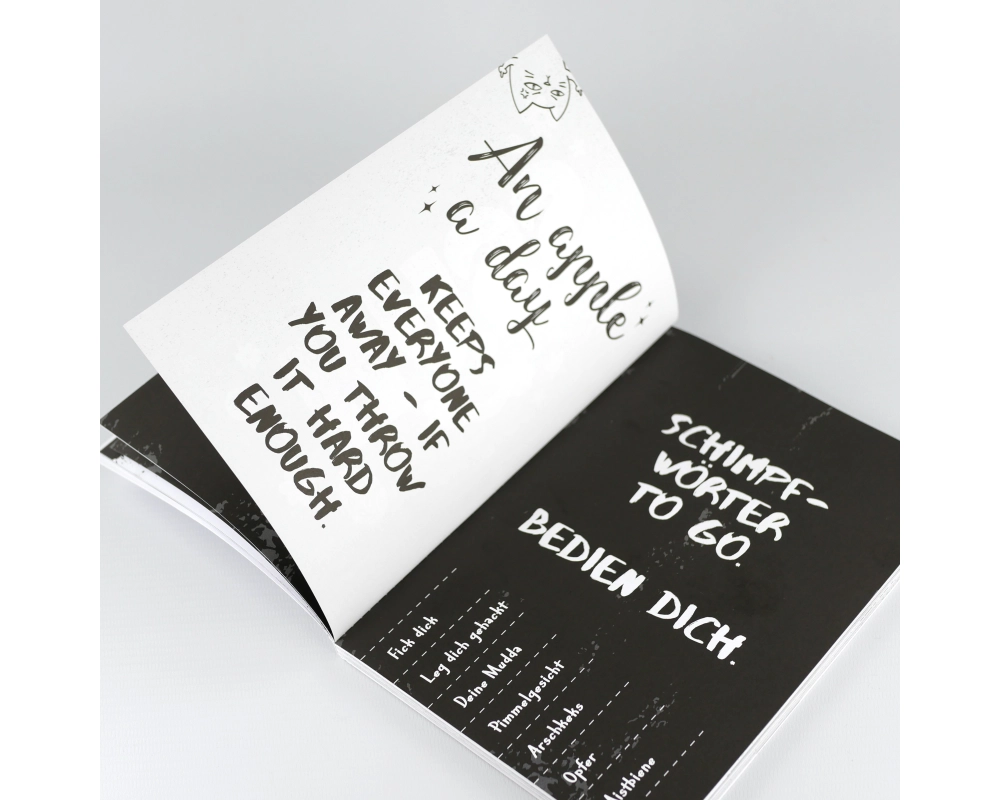 An apple
a day
KEEPS
EVERYONE
AWAY - IF
YOU THROW
IT HARD
ENOUGH.
SCHIMPF-
WÖRTER
TO GO.
BEDIEN DICH.
Fick dick
Leg dich gehackt
Deine Mudda
Pimmelgesicht
Arschkeks
Opfer
Mistbiene